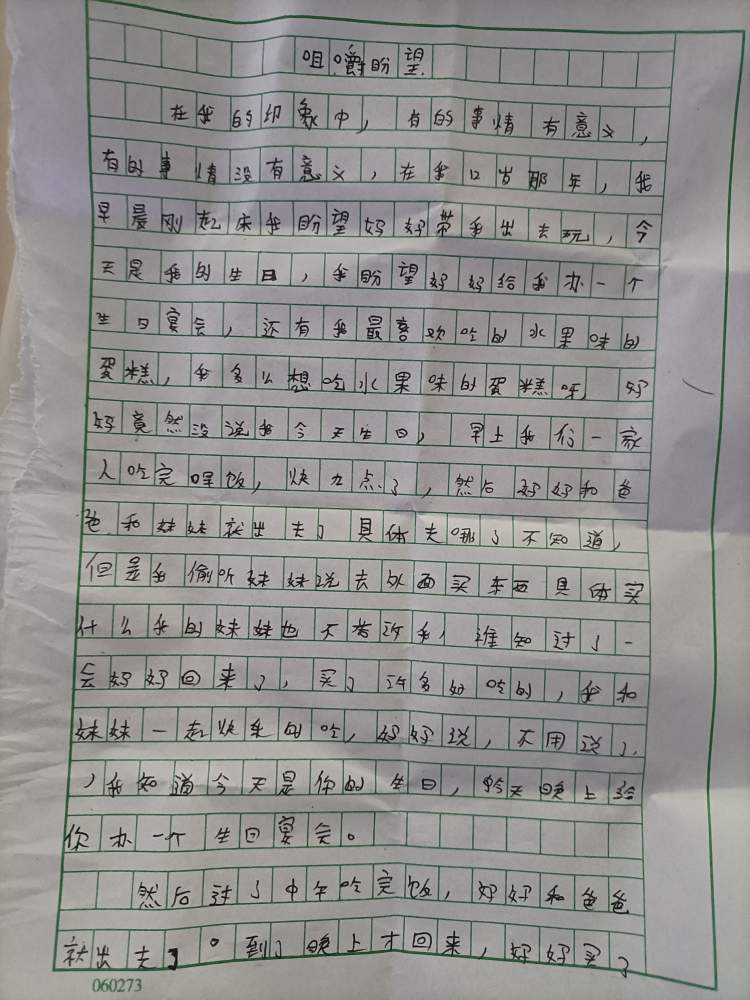 咀嚼盼望
在我的印象中，有的事情有意义，
有的事情没有意义，在我12岁那年，我
早晨刚起床我盼望好好带我出去玩，今
天是我的生日，我盼望好好给我办一个
生日宴会，还有我最喜欢吃的水果味的
蛋糕，我多么想吃水果味的蛋糕呀，好
好竟然没说我今天生日，早上我们一家
人吃完早饭，快九点了，然后好好和爸
爸和妹妹就出去了具体去哪了不知道，
但是我偷听妹妹说去外面买东西具体买
什么我的妹妹也不告诉我，谁知过了一
会好好回来了，买了许多好吃的，我和
妹妹一起快乐的吃，好好说，不用说了，
，我知道今天是你的生日，今天晚上给
你办一个生日宴会。
然后过了中午吃完饭，好好和爸爸
就出去了。到了晚上才回来，好好买了
060273